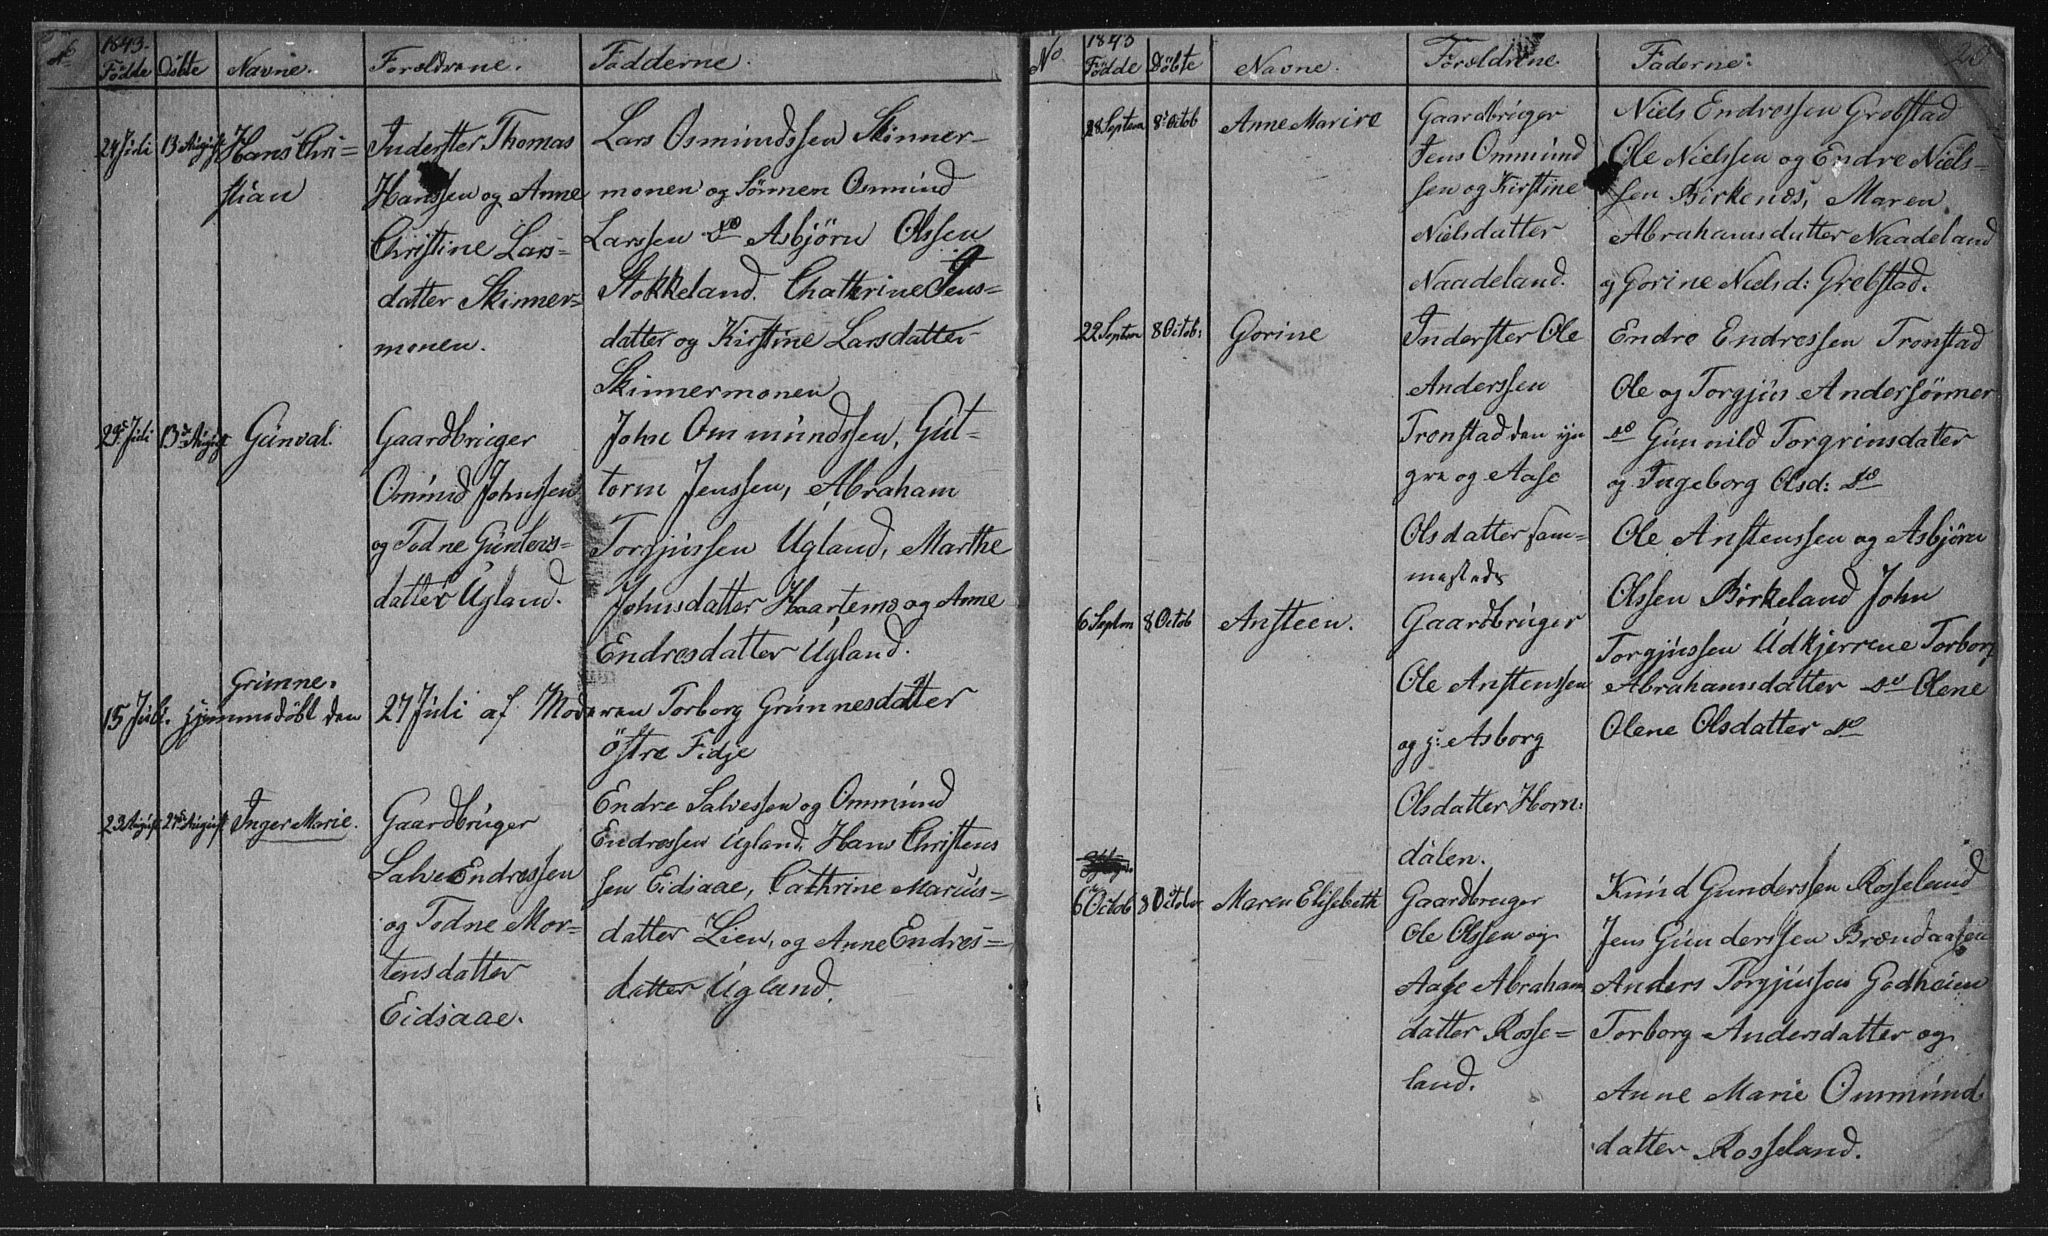 No 1843. Fødde Døbte Navne. Forældrene. Fadderne.
24 Juli 13 August Hans Chri=
stian
Inderster Thomas
Hanssen og Anne
Christine Lars=
datter Skinner=
monen.
Lars Osmundssen Skinner=
monen og Sønnen Osmund
Larssen do Asbjørn Olssen
Stokkeland. Chathrine Jens=
datter og Kirstine Larsdatter
Skinnermonen
29de Juli 13de August Gunval.
Gaardbruger
Omund Johnssen
og Todne Gunters=
datter Ugland.
John Ommundssen, Gut=
torm Jenssen, Abraham
Torgjussen Ugland, Marthe
Johnsdatter Haartemo og Anne
Endresdatter Ugland.
Grunne.
15 Juli. hjemmedøbt den 27 Juli af Moderen Torborg Grunnesdatter
Østre Fidje
23 August 27de August Inger Marie.
Gaardbruger
Salve Endressen
og Todne Mor=
tensdatter
Eidsaae.
Endre Salvessen og Ommund
Endressen Ugland. Hans Christens
sen Eidsaae, Cathrine Marcus=
datter Lien, og Anne Endres=
datter Ugland.
No 1843 Fødde Døbte Navne. Forældrene. Faderne: 20
28 Septem 8de Octob Anne Marire
Gaardbruger
Jens Ommund
sen og Kirstine
Nielsdatter
Naadeland.
Niels Endressen Grebstad
Ole Nielssen og Endre Niels=
sen Birkenes, Maren
Abrahamsdatter Naadeland
og Gorine Nielsd: Grebstad.
22 Septem 8 Octob: Gorine
Inderster Ole
Anderssen
Tronstad den yn
gre og Aase
Olsdatter sam=
mesteds
Endre Endressen Tronstad
Ole og Torgjus Andersønner
do Gunnild Torgrimsdatter
og Ingeborg Olsd: do
6 Septem 8 Octob Ansteen.
Gaardbruger
Ole Anstenssen
og g: Asborg
Olsdatter Horn:
dalen.
Ole Anstenssen og Asbjørn
Olssen Birkeland John
Torgjussen Udkjerrene Torborg
Abrahamsdatter do Olene
Olene Olsdatter do
6te Octob 8 October Maren Elisebeth
Gaardbruger
Ole Olssen og
Aase Abraham
datter Rosse=
land.
Knud Gunderssen Rosseland
Jens Gunderssen Brændaasen
Anders Torgjussen Godheien
Torborg Andersdatter og
Anne Marie Ommund
datter Rosseland.